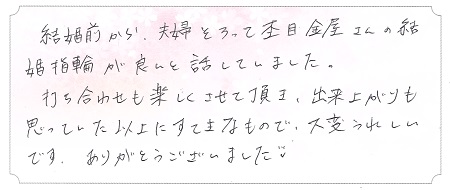 結婚前から、夫婦そろって杢目金屋さんの結
婚指輪が良いと話していました。
打ち合わせも楽しくさせて頂き、出来上がりも
思っていた以上にすてきなもので、大変うれしい
です。ありがとうございました♡